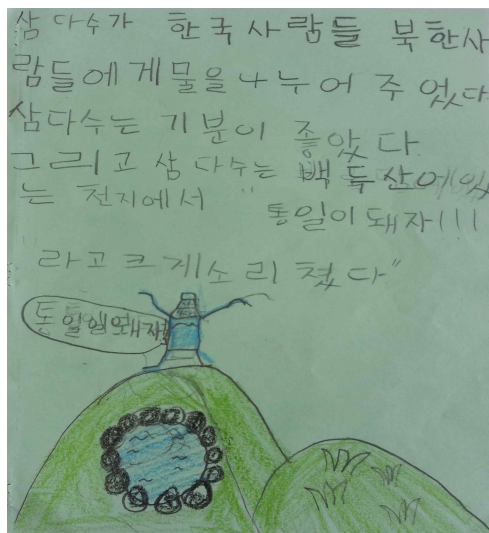 삼다수가 한국사람들 북한사
람들에게물을 나누어 주었다
삼다수는 기분이 좋았다.
그리고 삼다수는 백두산에있
는 천지에서 "통일이돼자!!!
라고크게소리쳤다"
통일이돼자!